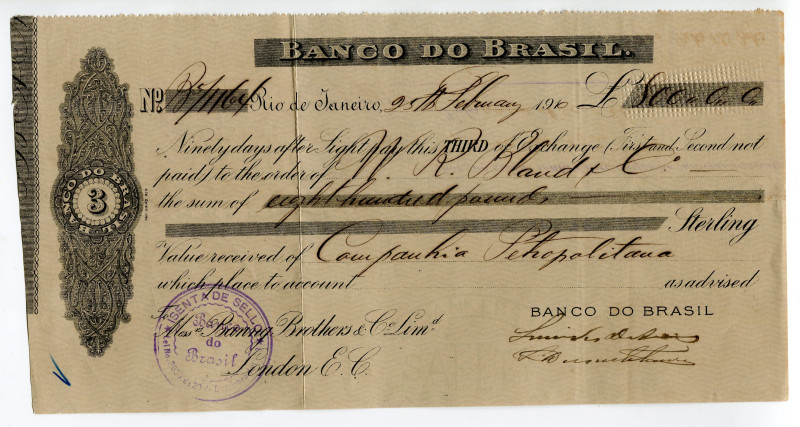 BANCO DO BRASIL.
No. B/1164 Rio de Janeiro, 25th February 1910 £ 800. 0. 0
Ninety days after Sight pay this THIRD of Exchange (First and Second not
paid) to the order of R. Bland & Co.
the sum of eight hundred pounds
Sterling
Value received of Companhia Petropolitana
which place to account as advised
BANCO DO BRASIL
Messrs Baring Brothers & Co. Limd
London E.C.
BANCO DO BRASIL
3
ISENTA DE SELLO
Banco
do
Brasil